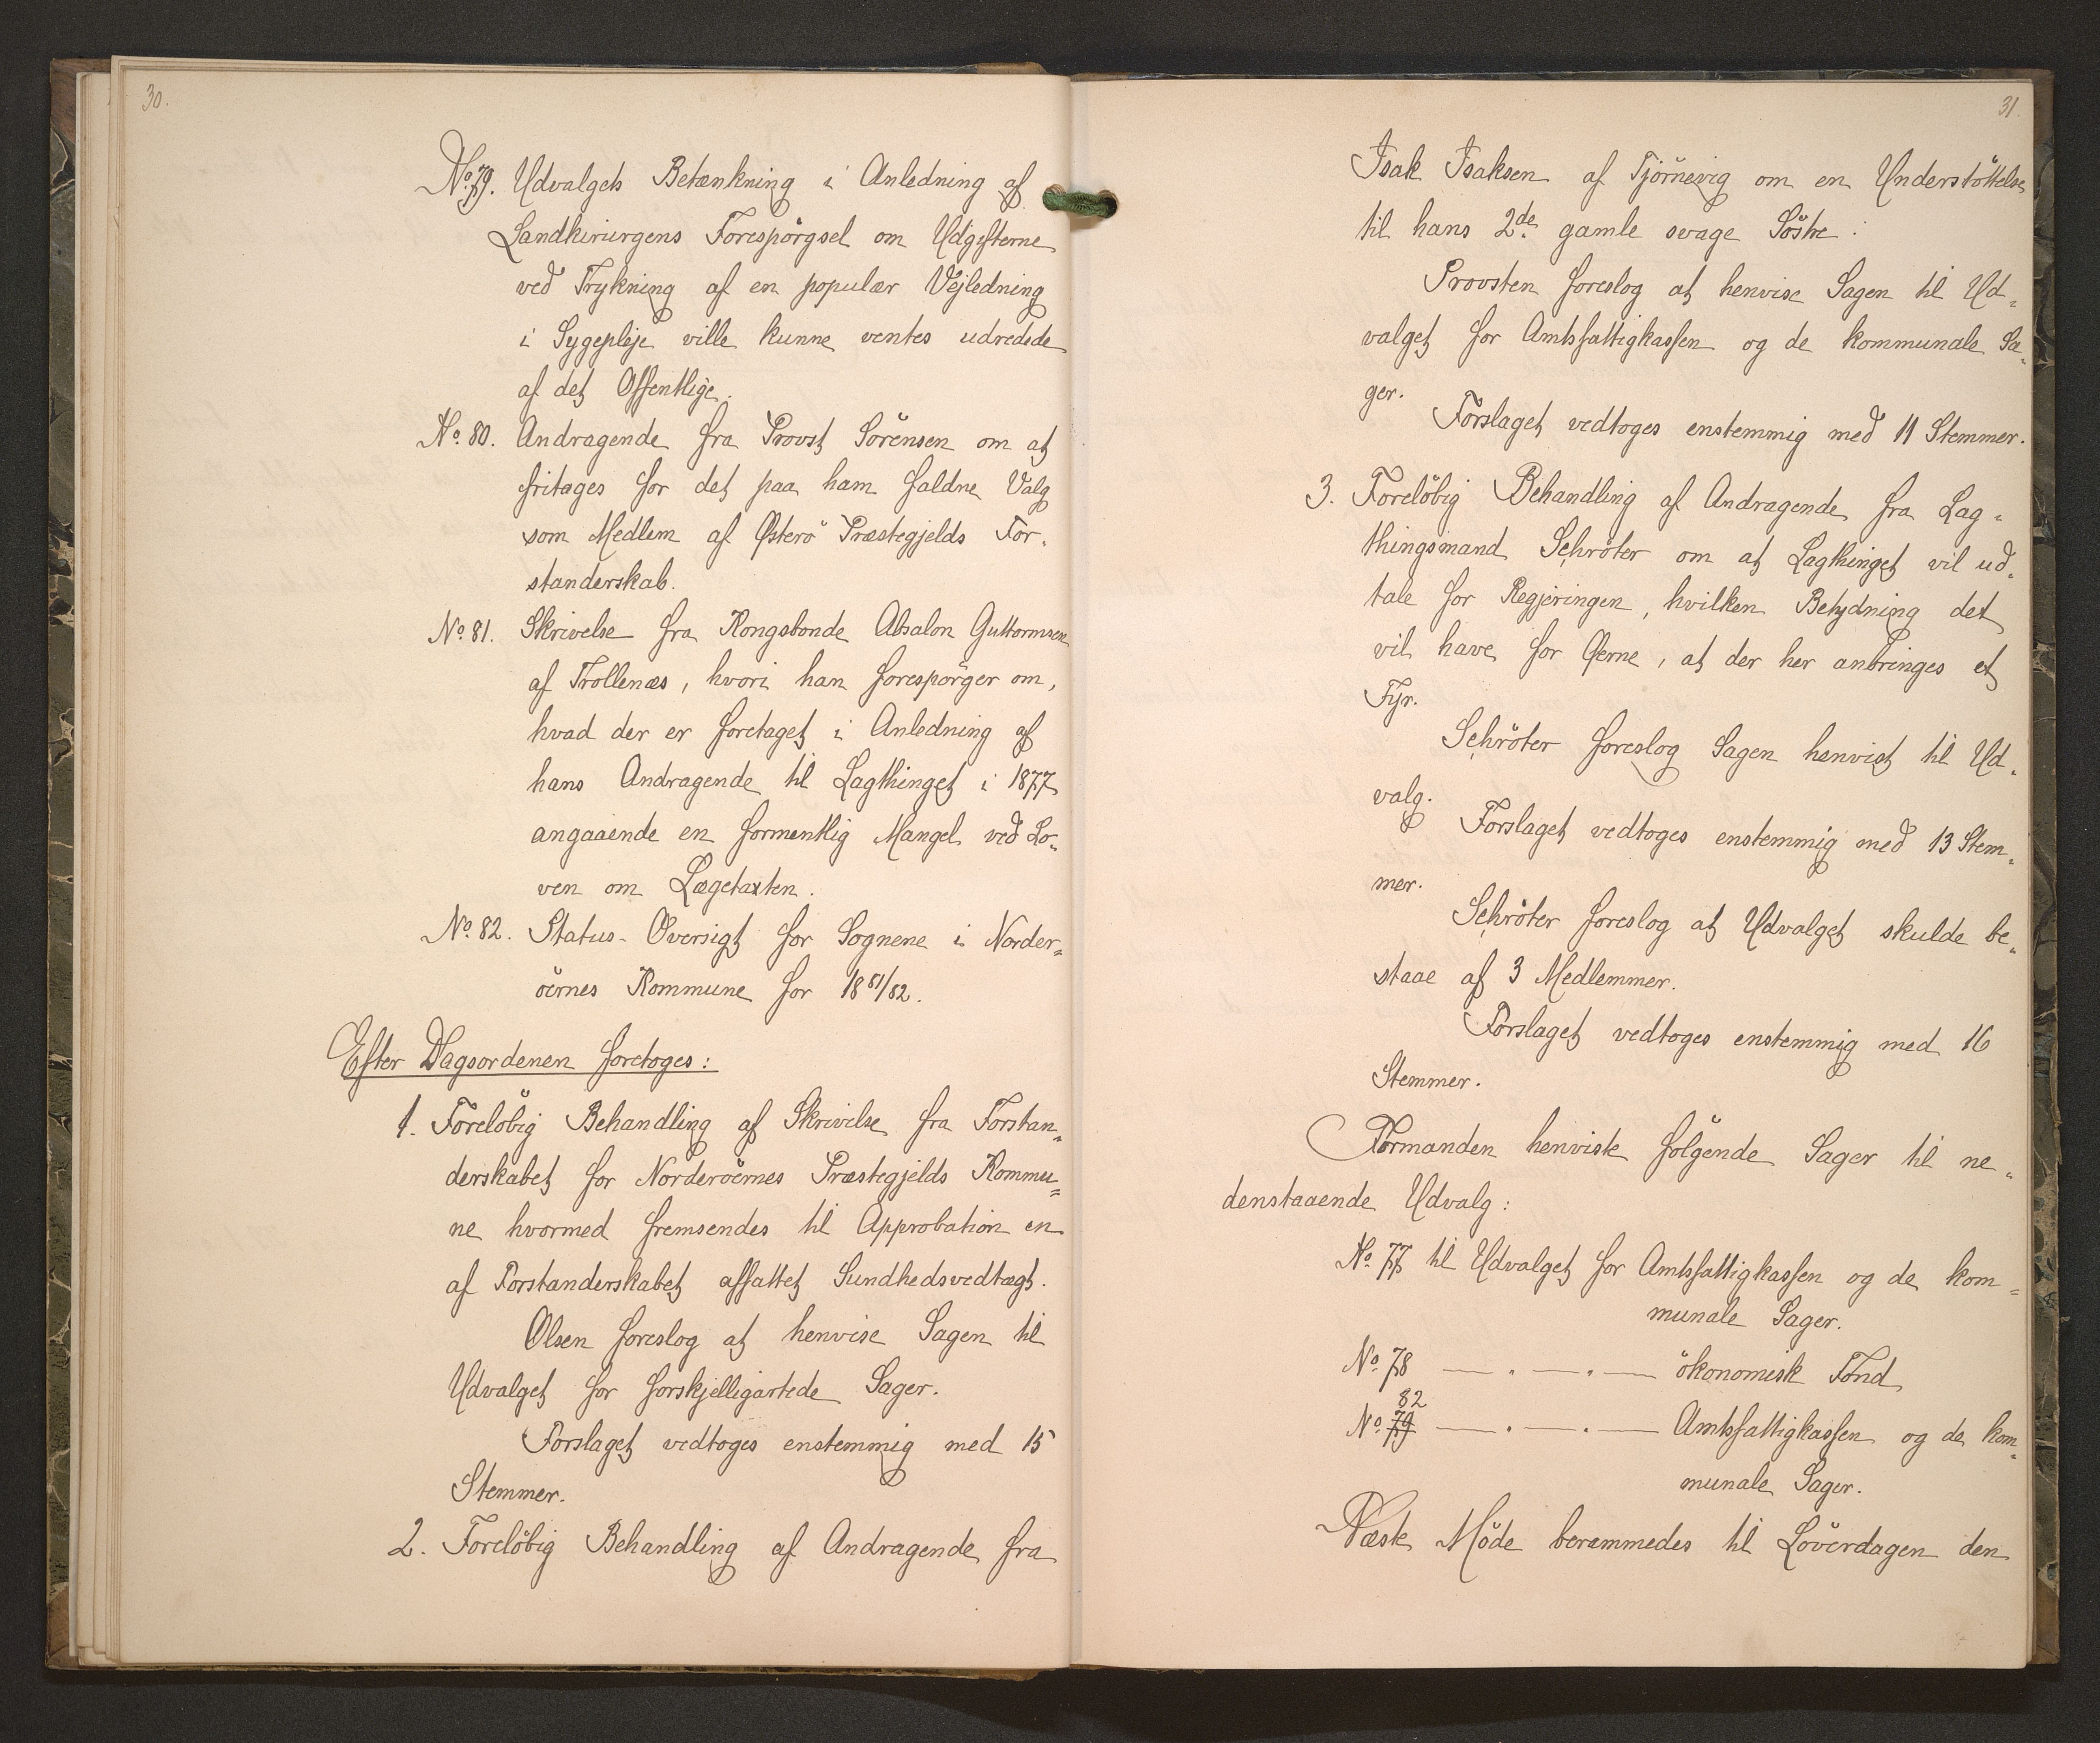 30.
No. 79. Udvalgets Betænkning i Anledning af
Landkirurgens Forespörgsel om Udgifterne
ved Trykning af en populær Vejledning
i Sygepleje ville kunne ventes udredede
af det Offentlige.
No. 80. Andragende fra Provst Sörensen om at
fritages for det paa ham faldne Valg
som Medlem af Østerö Præstegjelds For-
standerskab.
No. 81. Skrivelse fra Kongsbonde Absalon Guttormsen
af Trollenæs, hvori han forespörger om,
hvad der er foretaget i Anledning af
hans Andragende til Lagthinget i 1877
angaaende en formentlig Mangel ved Lo-
ven om Lægetaxten.
No. 82. Status-Oversigt for Sognene i Norder-
öernes Kommune for 1881/82.
Efter Dagsordenen foretoges:
1. Foreløbig Behandling af Skrivelse fra Forstan-
derskabet for Norderöernes Præstegjelds Kommu-
ne hvormed fremsendes til Approbation en
af Forstanderskabet affattet Sundhedsvedtægt.
Olsen foreslog at henvise Sagen til
Udvalget for forskjelligartede Sager.
Forslaget vedtoges enstemmig med 15
Stemmer.
2. Forelöbig Behandling af Andragende fra
31.
Isak Isaksen af Tjörnevig om en Understöttelse
til hans 2de gamle svage Söstre.
Provsten foreslog at henvise Sagen til Ud-
valget for Amtsfattigkassen og de kommunale Sa-
ger.
Forslaget vedtoges enstemmig med 11 Stemmer.
3. Forelöbig Behandling af Andragende fra Lag-
thingsmand Schröter om at Lagthinget vil ud-
tale for Regjeringen, hvilken Betydning det
vil have for Øerne, at der her anbringes et
Fyr.
Schröter foreslog Sagen henvist til Ud-
valg.
Forslaget vedtoges enstemmig med 13 Stem-
mer.
Schröter foreslog at Udvalget skulde be-
staae af 3 Medlemmer.
Forslaget vedtoges enstemmig med 16
Stemmer.
Formanden henviste fölgende Sager til ne-
denstaaende Udvalg:
No. 77 til Udvalget for Amtsfattigkassen og de kom-
munale Sager.
No. 78 — " — " — ökonomisk Fond
82
No. 79 — " — " — Amtsfattigkassen og de kom-
munale Sager.
Næste Möde berammedes til Löverdagen den